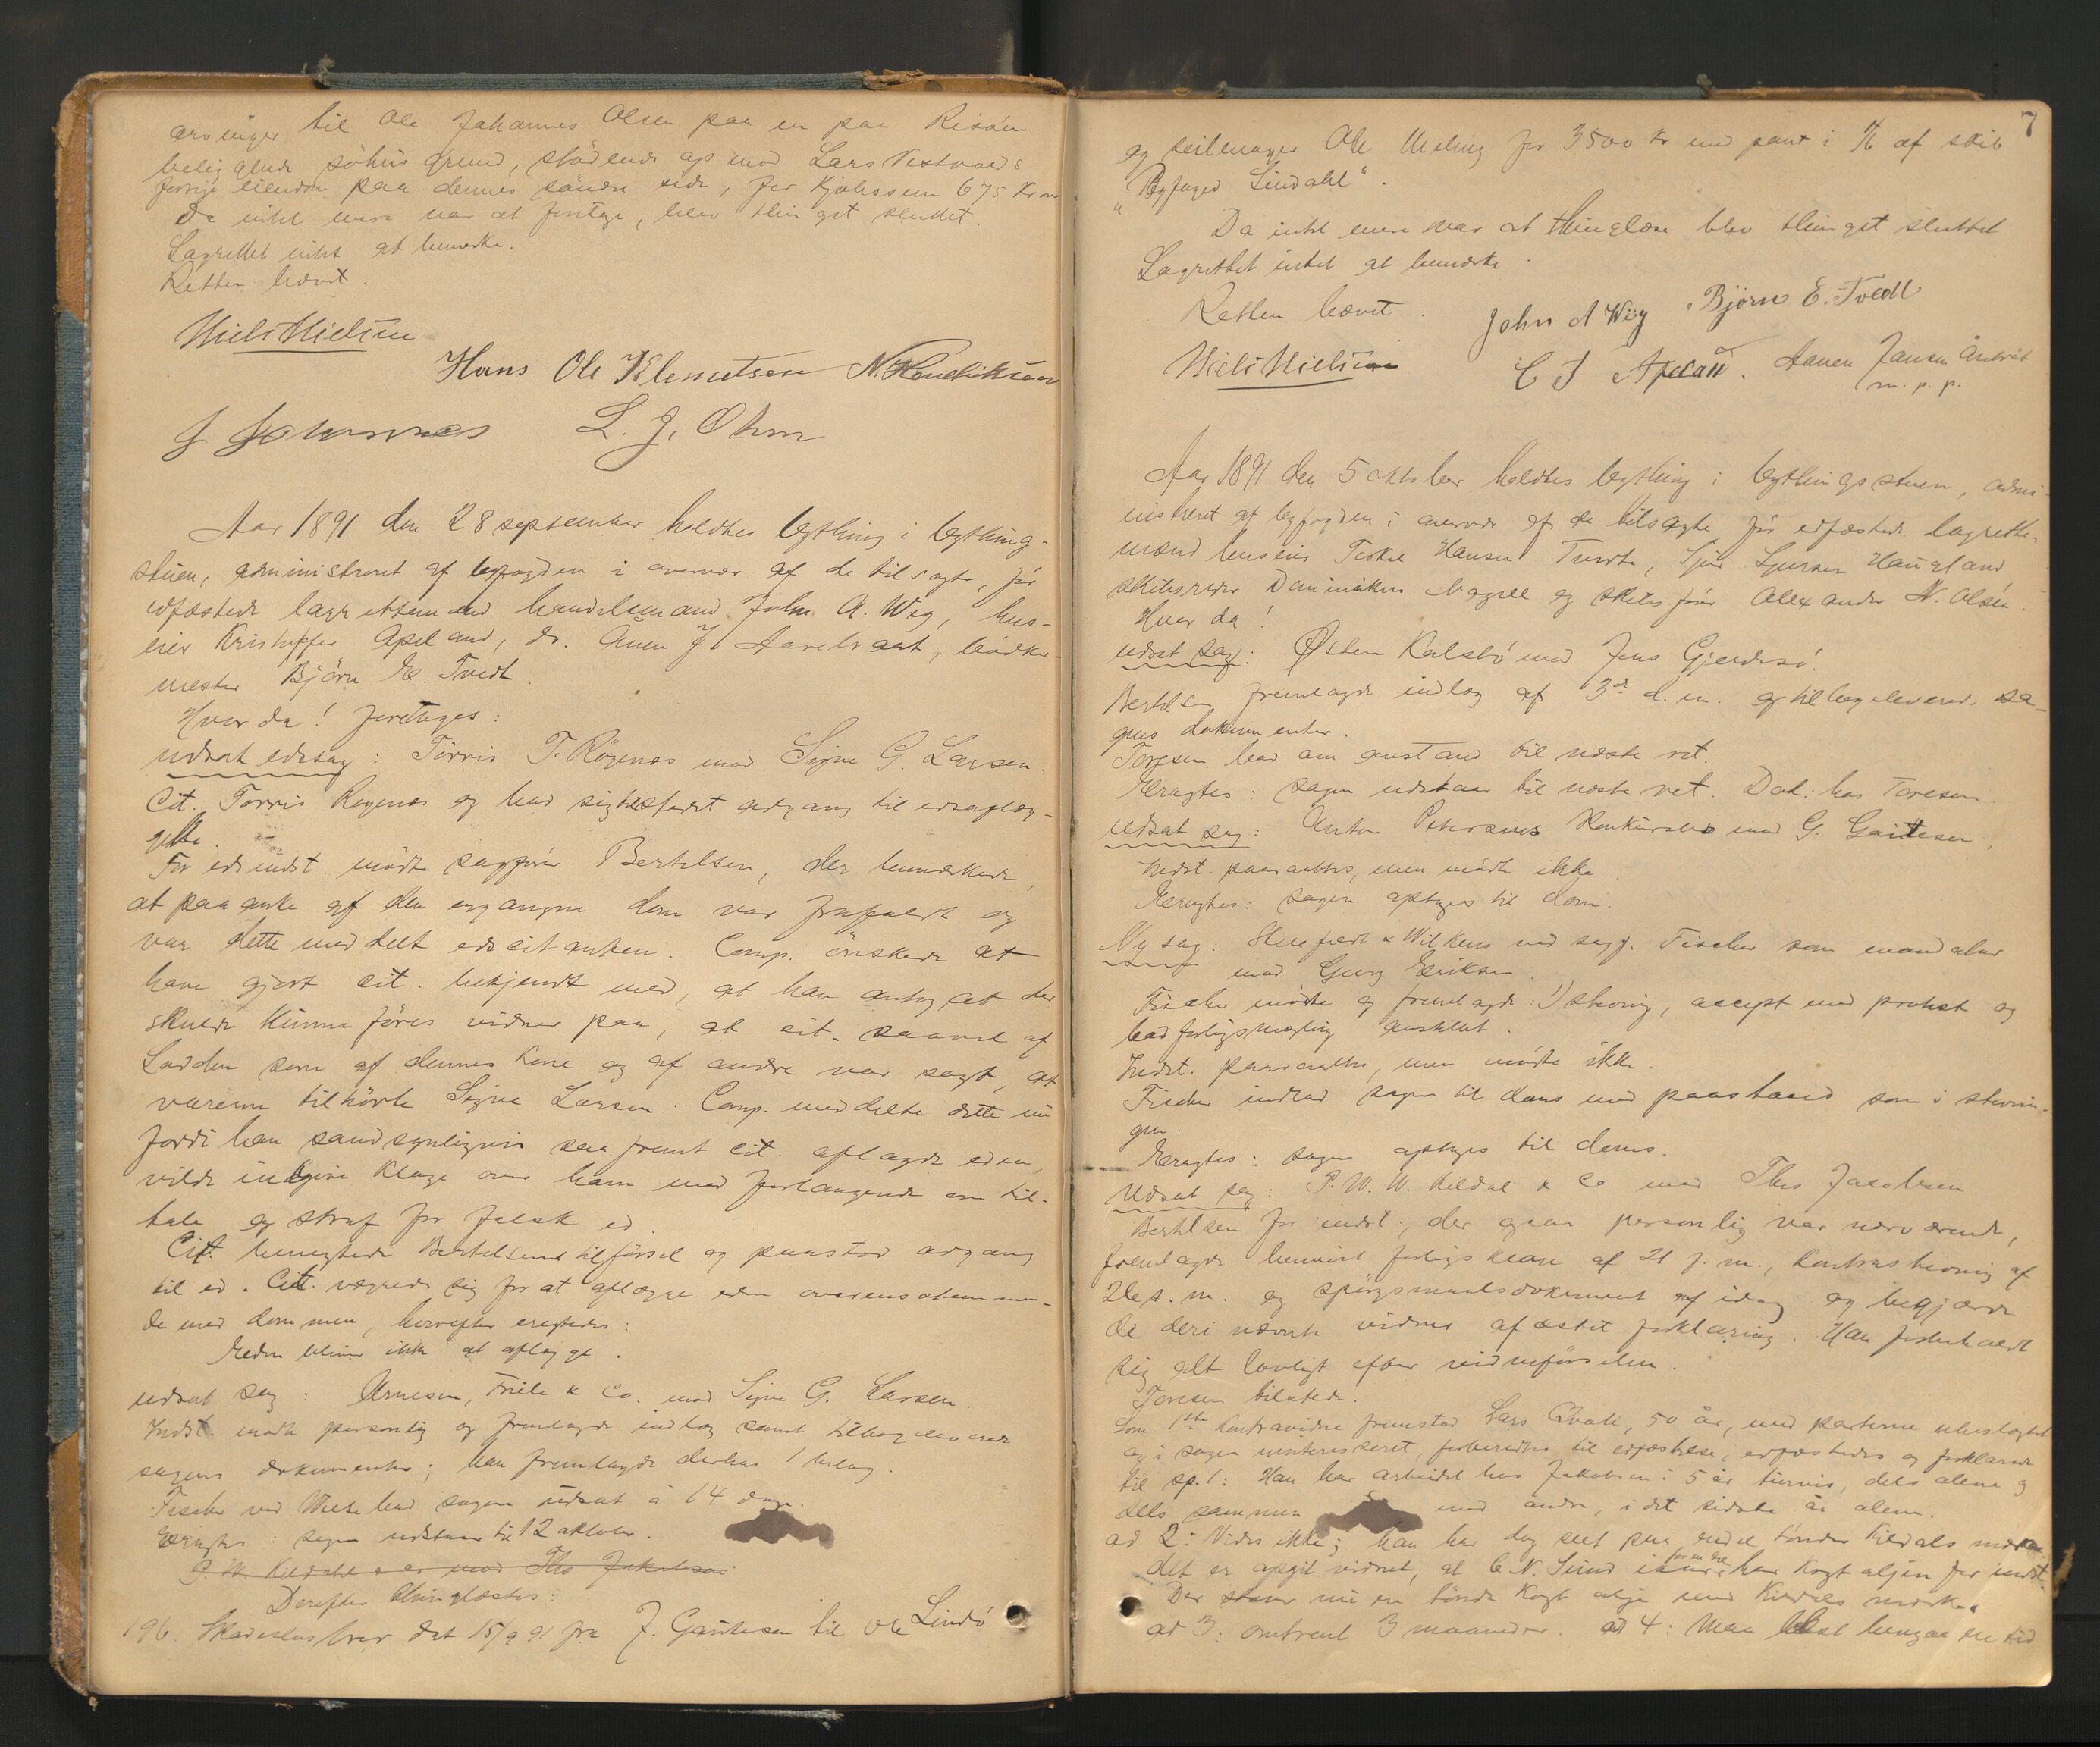 til Ole Johannes Olsen paa en paa Risøen
beliggende söhus grund, stödende op mod Lars Vestvold's
forrige eiendom paa dennes söndre side, for kjöbesum 675 Kroner
Da intet mere var at foretage, blev thinget sluttet.
Lagrettet intet at bemerke.
Retten hævet.
Niels Nielsen
Hans Ole Klemetsen N. Hendriksen
J Johannes L. J. Ohm
Aar 1891 den 28 september holdtes bything i bything-
stuen, administreret af byfogden i overvær af de tilsagte, för
edfæstede lagrettemænd handelsmand John A. Wig, hus-
eier Kristoffer Apeland, do. Aanen J. , bödker-
mester Björn E. Tvedt.
Hvor da! foretages:
udsat edssag: Törris T. Rögenes mod Signe G. Larsen.
Cit. Törris Rögenes og bad sig tilstedet adgang til edsaflæg-
gelse.
For edsindst. mödte sagförer Bertelsen, der bemærkede,
at paaanke af den ergangne dom var frafaldt og
var dette meddelt edscitanten. Comp. önskede at
have gjort cit. bekjendt med, at han antog at der
skulde kunne föres vidner paa, at cit. saavel af
Ladden som af dennes kone og af andre var sagt, at
varerne tilhörte Signe Larsen. Comp. meddelte dette nu
fordi han sandsynligvis saafremt cit. aflagde eden,
vilde indgive klage over ham med forlangende om til-
tale og straf for falsk ed.
Cit. benegtede Bertelsens tilförsel og paastod adgang
til ed. Cit. vægrede sig for at aflægge eden overensstemmen-
de med dommen, hvorefter eragtedes:
Eden bliver ikke at aflægge.
udsat sag: Arnesen, Friele & Co. mod Signe G. Larsen.
Indst. mödte personlig og fremlagde indlæg samt tilbageleverede
sagens dokumenter; han fremlagde derhos 1 bilag.
Fischer ved bad sagen udsat à 14 dage.
Eragtes: sagen udstaar til 12 oktober.
P. W. W. Kildal & Co mod Ths Jakobsen
Derefter thinglæstes:
196. Skadeslösbrev dat 15/9 91 fra J. Gautesen til Ole Lindö
7
og seilmager Ole Meling for 3500 kr med pant i af skib
"Byfoged Lindahl".
Da intet mere var at thinglæse blev thinget sluttet
Lagrettet intet at bemerke.
Retten hævet.
John A Wig Björn E. Tvedt
Niels Nielsen
C J Apeland. Aanen Jansen
m. p. p.
Aar 1891 den 5 oktober holdtes bything i bythingsstuen, admi-
nistreret af byfogden i overvær af de tilsagte för edfæstede lagrette-
mænd huseier Torkel Hansen Tvedte, Sjur Sjursen Haugland,
skibsreder Dominikus Nagell og skibsförer Alexander N. Olsen.
Hvor da!
udsat sag: Østen Kalstö mod Jens Gjerdesö.
Bertelsen fremlagde indlæg af 3de d. m. og tilbageleverede sa-
gens dokumenter.
Toresen bad om anstand til næste ret.
Eragtes: sagen udstaar til næste ret. Dok: hos Toresen
udsat sag: Anton Petersens Konkursbo mod G. Gautesen.
Indst. paaraabtes, men mödte ikke.
Eragtes: sagen optages til dom.
Ny sag: & Wilkens ved sagf. Fischer som mandatar
mod Georg Eriksen.
Fischer mödte og fremlagde: 1) stevning, accept med protest og
bad forligsmægling anstillet.
Indst. paaraabtes, men mödte ikke.
Fischer indlod sagen til doms med paastand som i stevnin-
gen.
Eragtes: sagen optages til doms.
Udsat sag: P. W. W. Kildal & Co mod Ths Jacobsen
Bertelsen for indst., der ogsaa personlig var nærværende,
fremlagde henvist forligsklage af 21 f. m., kontrastevning af
2des. m. og spörgsmaalsdokument af idag og begjærede
de deri nævnte vidners afæsket forklaring. Han forbeholdt
sig alt lovligt efter vidneförselen.
Toresen tilstede.
Som 1ste kontravidne fremstod Lars Qvale, 50 år, med parterne ubeslægtet
og i sagen uinteresseret, forberedtes til edfæstelse, edfæstedes og forklarede
til sp. 1: Han har arbeidet hos Jakobsen i 5 år , dels alene og
dels sammen med andre, i det sidste år alene.
ad 2: Vides ikke; han har dog seet paa endel tönder Kildals mærke
det er opgit vidnet, at C. N. Sund har kogt oljen for indst.
Der staar nu en tönde kogt olje med Kildals mærke.
ad 3: omtrent 3 maaneder. ad 4: Maa hengaa en tid